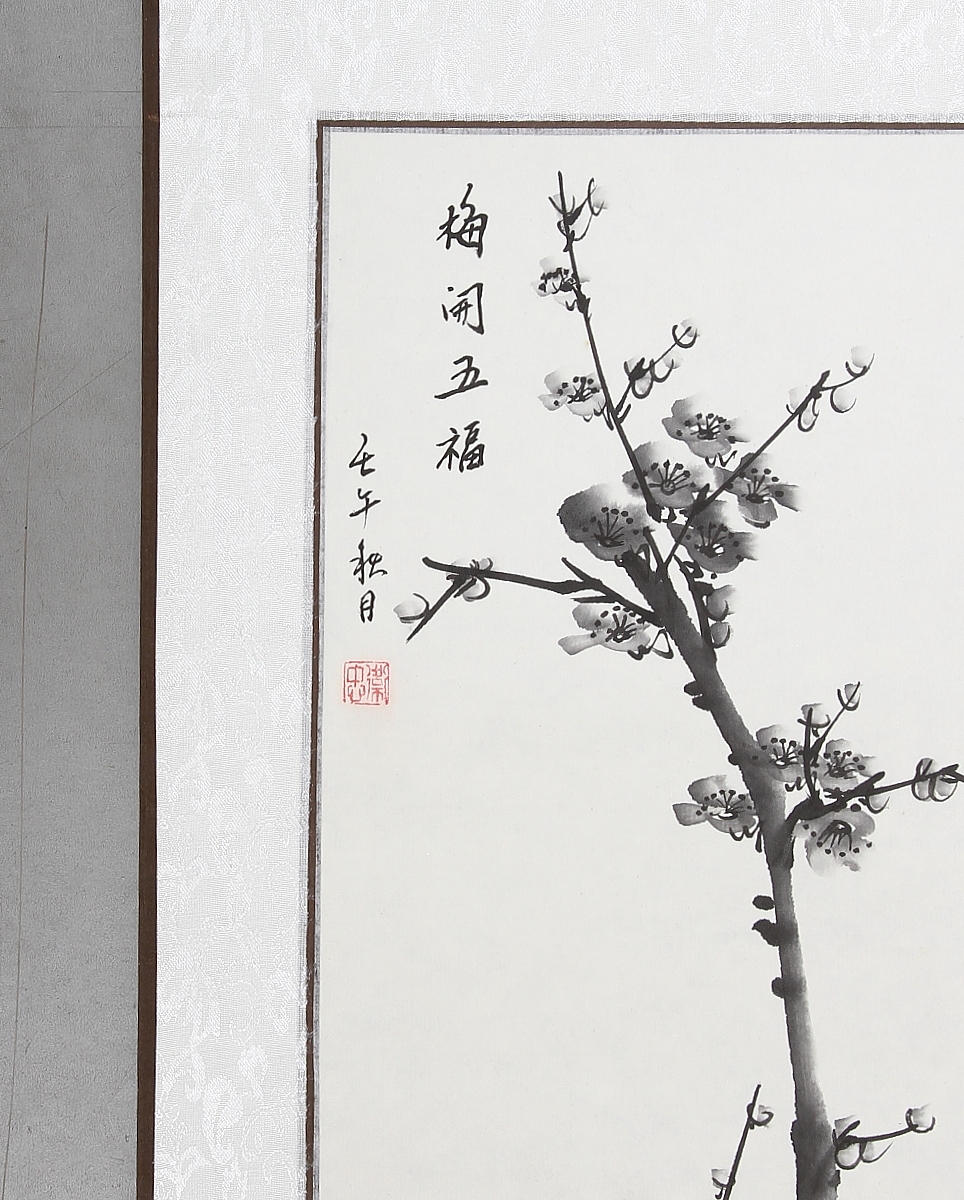 梅開五福
壬午秋月